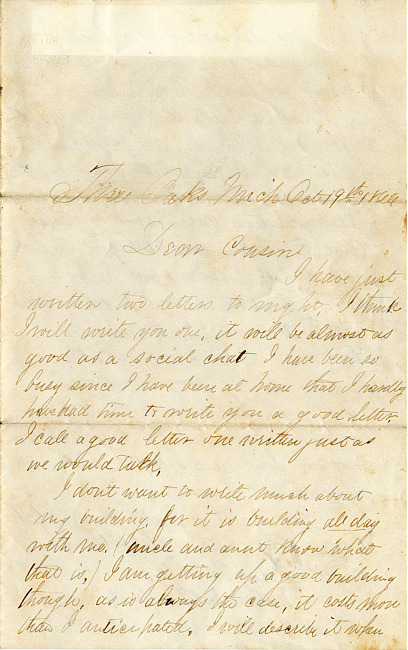 Three Oaks Mich Oct 19th 1866
Dear Cousin
I have just
written two letters to night, I think
I will write you one, it will be almost as
good as a social chat I have been so
busy since I have been at home that I hardly
have had time to write you a good letter.
I call a good letter one written just as
we would talk.
I dont want to write much about
my building, for it is building all day
with me. (uncle and aunt know what
that is,) I am getting up a good building
though, as is always the case, it costs more
than I anticipated. I will describe it when